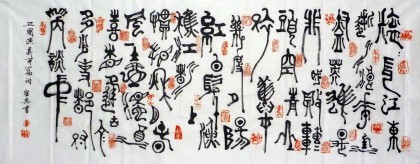 滚滚長江東
逝水浪花淘
盡英雄是
非成敗轉
頭空青山
依舊在
幾度夕陽
紅白髮漁
樵江渚上
慣看秋月
春風一壺濁
酒喜相逢古今
多少事都付
笑談中
三國演義開篇詞